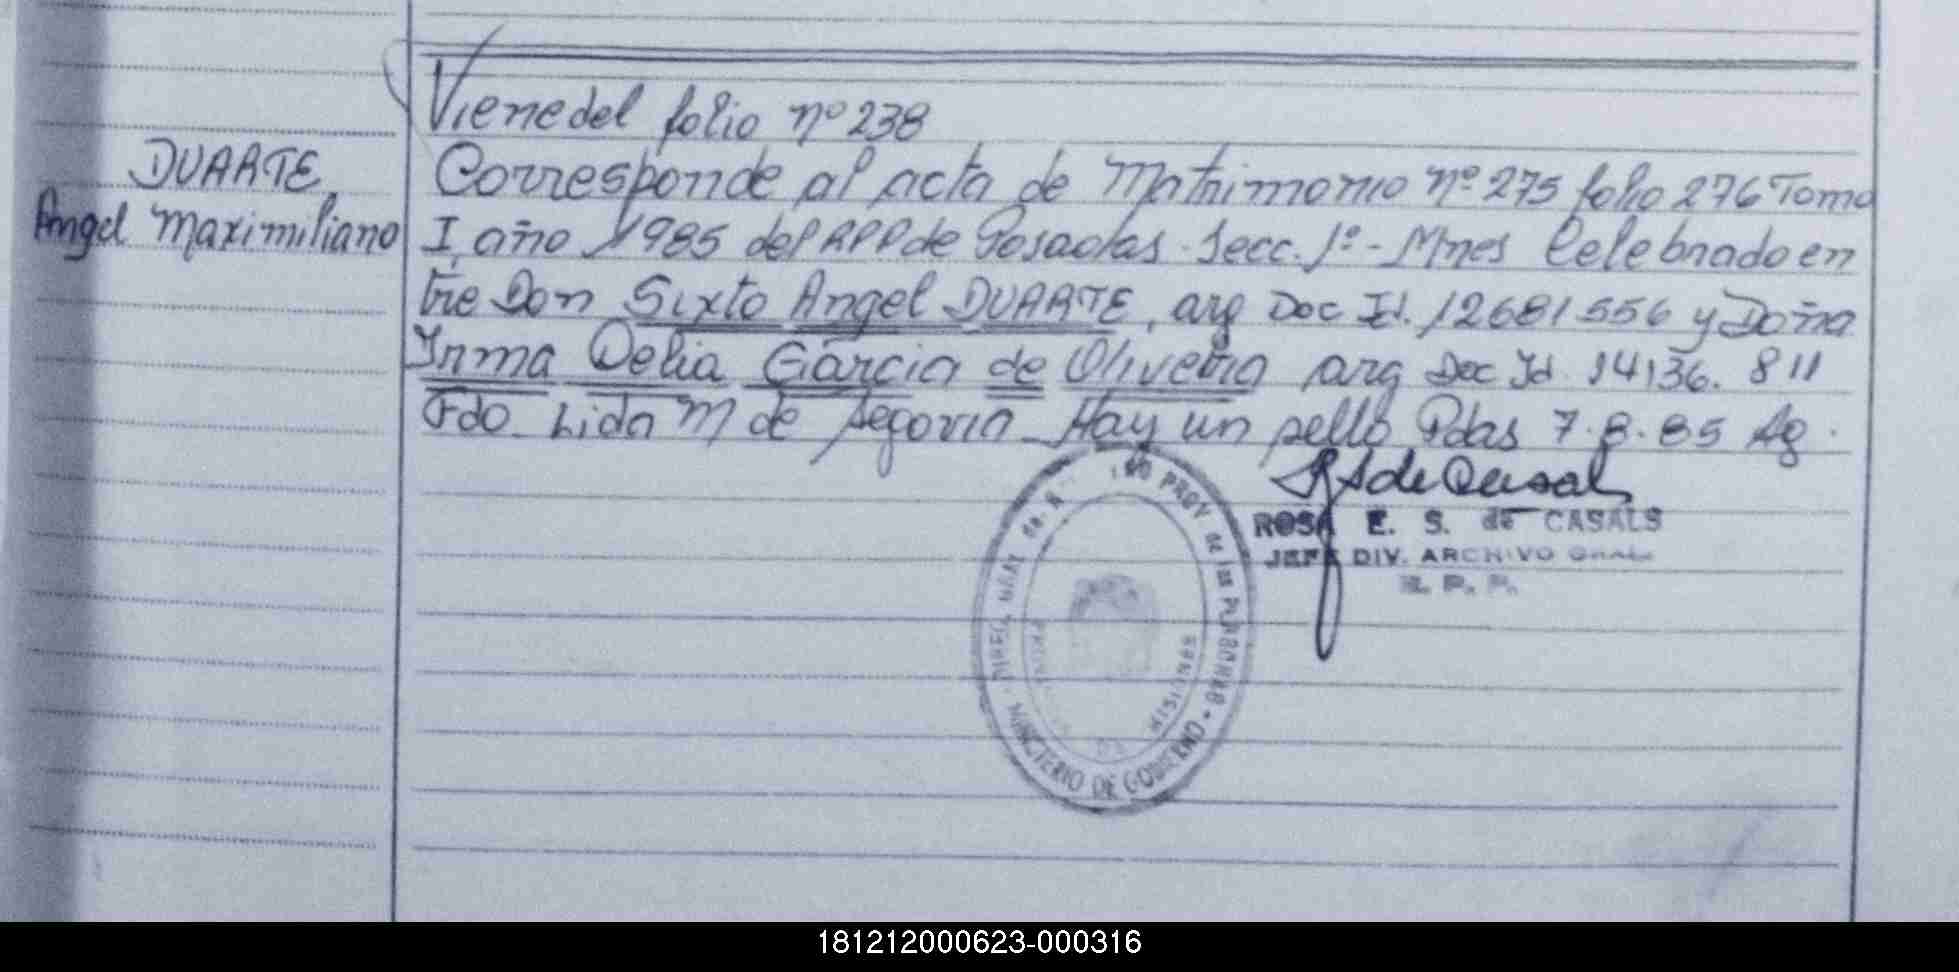 Viene del folio nº 238
DUARTE
Angel Maximiliano
Corresponde al acta de Matrimonio nº 275 folio 276 Tomo
I, año 1985 del RPP de Posadas - Secc. 1º - Mnes Celebrado en
tre Don Sixto Angel DUARTE, arg Doc Id. 12681556 y Doña
Irma Delia Garcia de Oliveira arg Doc Id 14136.811
Fdo. Lida M de Segovia - Hay un sello Pdas 7.8.85 Ag.
ROSA E. S. de CASALS
JEFE DIV. ARCHIVO GRAL
R. P. P.
PROV. de las PERSONAS • MINISTERIO DE GOBIERNO
MISIONES
181212000623-000316